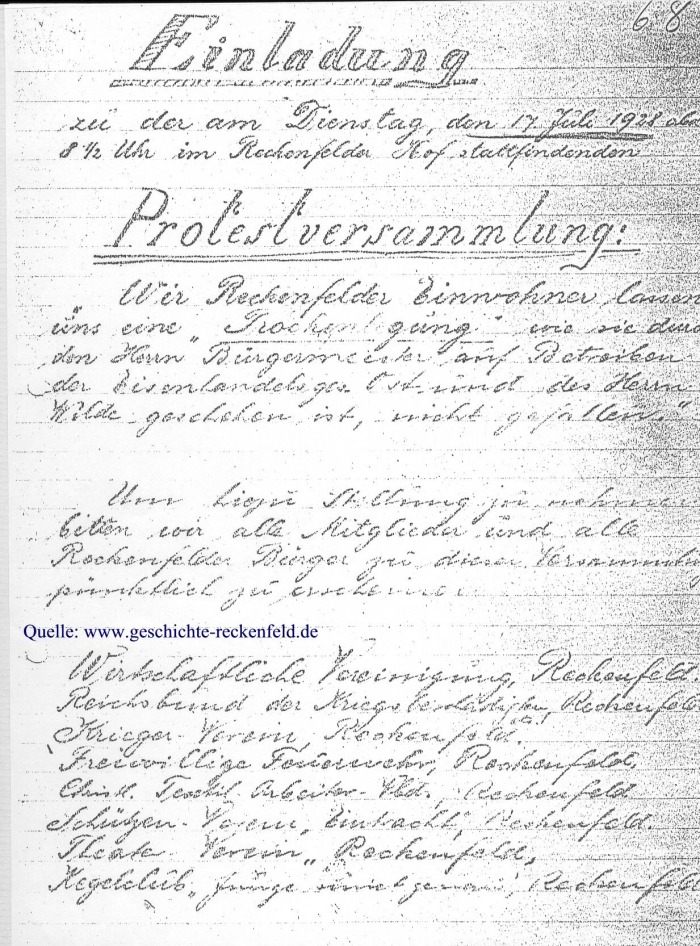 68
Einladung
zu der am Dienstag, den 17 Juli 1928 abe
8 1/2 Uhr im Reckenfelder Hof stattfindenden
Protestversammlung:
"Wir Reckenfelder Einwohner lassen
uns eine "Trockenl gung" wie sie durc
den Herrn Bürgermeister auf Betreiben
der Eisenhandelsges. Ost und des Herrn
Wilde geschehen ist, nicht gefallen."
Um hierzu Stellung zu nehmen
bitten wir alle Mitglieder und alle
Reckenfelder Bürger zu dieser Versammlung
pünktlich zu erscheinen.
Quelle: www.geschichte-reckenfeld.de
Wirtschaftliche Vereinigung, Reckenfeld.
Reichsbund der Kriegsbeschädigten, Reckenfeld
Krieger-Verein, Reckenfeld,
Freiwillige Feuerwehr, Reckenfeld,
Christl. Textil-Arbeiter-Vbd., Reckenfeld
Schützen-Verein "Eintracht", Reckenfeld.
Theater Verein "Reckenfeld,
Kegelclub "Junge, Reckenfeld